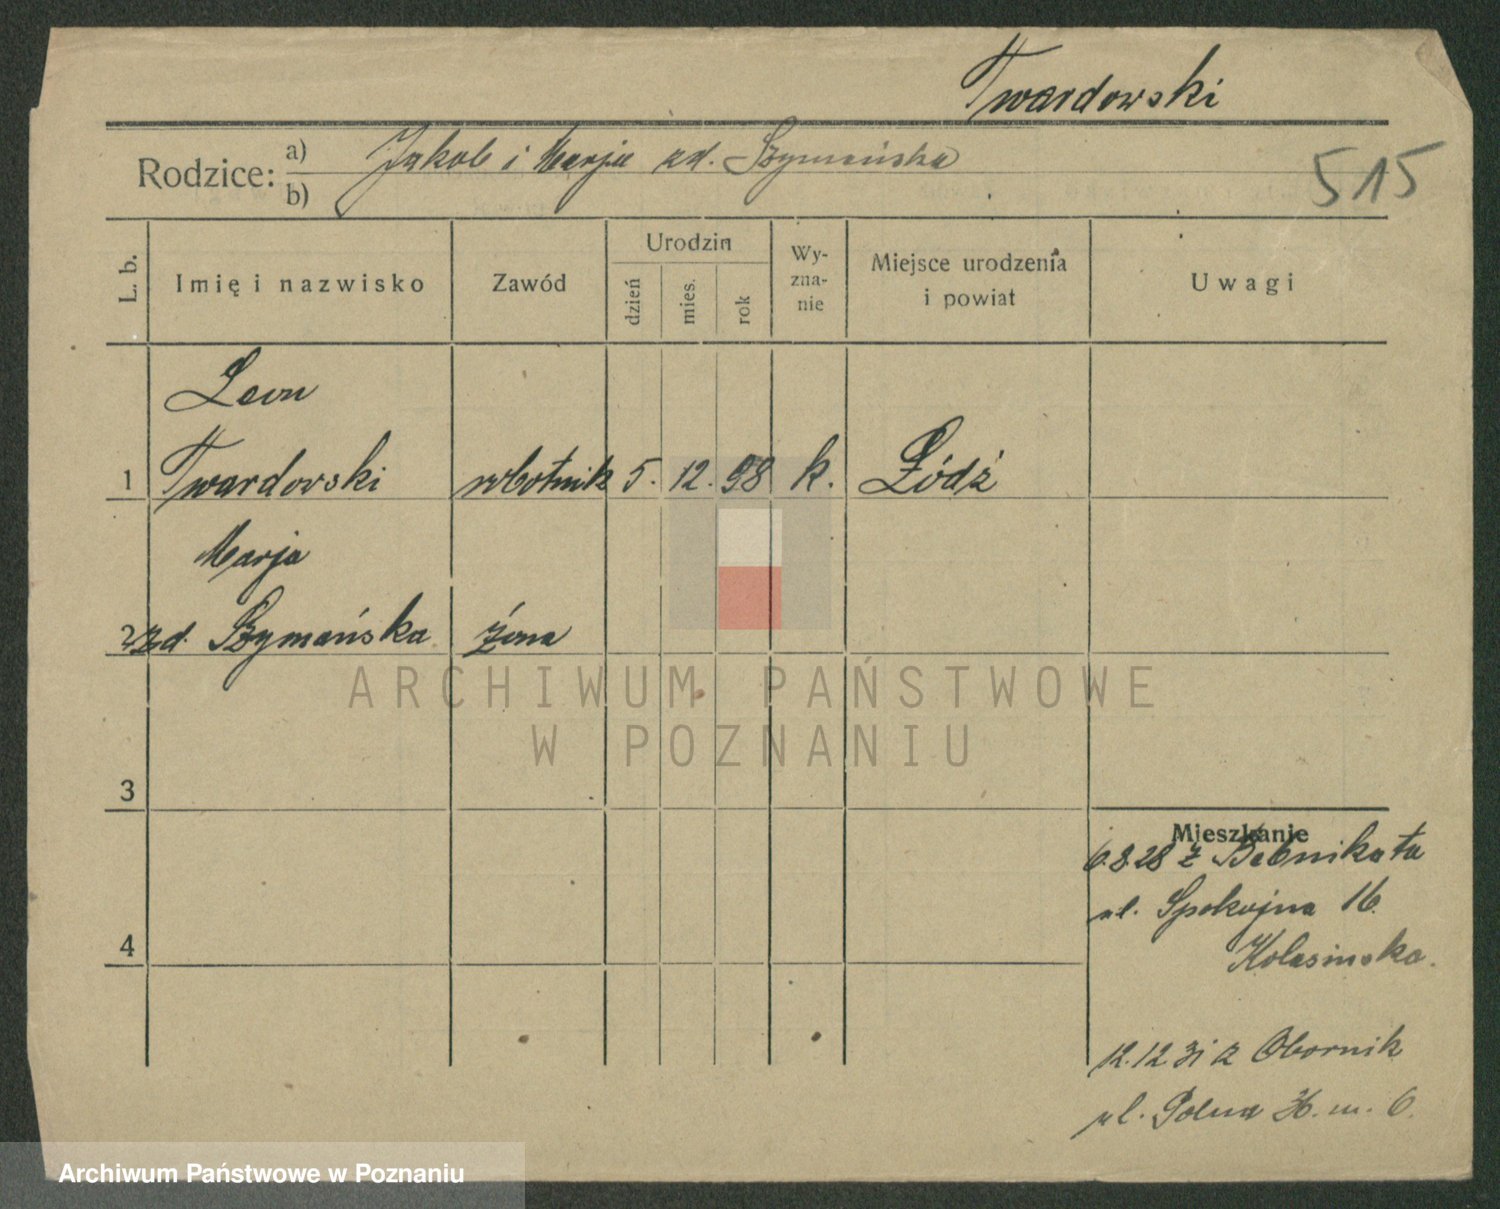 Twardowski
Rodzice: a) Jakob i Marja zd. Szymańska
b)
515
L. b.
Imię i nazwisko
Zawód
Urodzin
dzień
mies.
rok
Wy-
zna-
nie
Miejsce urodzenia
i powiat
Uwagi
Leon
1 Twardowski robotnik 5. 12. 98 k. Łódź
Marja
2 zd. Szymańska żona
ARCHIWUM PAŃSTWOWE
W POZNANIU
3
Mieszkanie
6.8.28 z
ul. Spokojna 16.
Kolasinska.
4
12.12.31 z Obornik
ul. Polna m. 6.
Archiwum Państwowe w Poznaniu